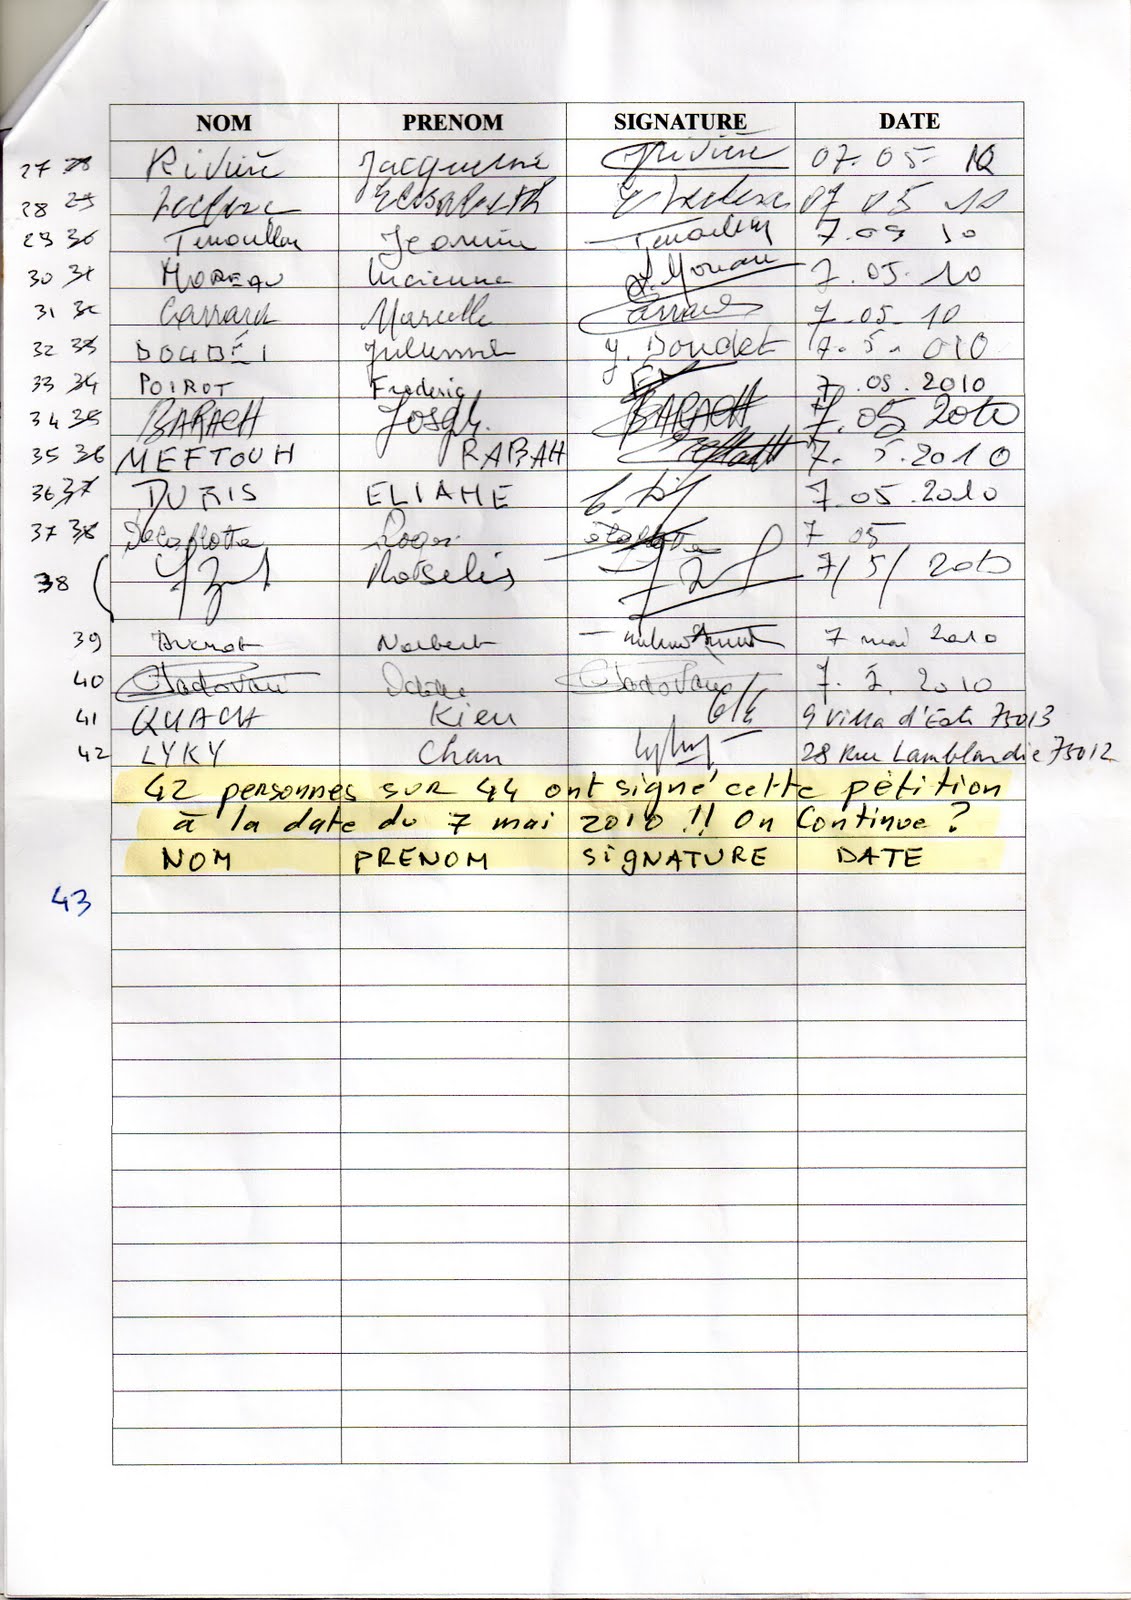 NOM PRENOM SIGNATURE DATE
27 28 Rivière Jacqueline Rivière 07.05. 10
28 29 Elisabeth 07 05 10
29 30 Jeannine 7.05 10
30 31 MOREAU Lucienne L. Moreau 7.05.10
31 32 Garrard Marcelle 7.05.10
32 33 Julienne J. Boudet 7.5. 010
33 34 POIROT Frederic 7.05.2010
34 35 BARACH Joseph. BARACH 7.05 2010
35 36 MEFTOUH RABAH 7.5.2010
36 37 DURIS ELIANE 7.05.2010
37 38 Delaflotte Roger 7 05
38 7/5/2010
39 Norbert 7 mai 2010
40 Padovani Padovani 7. 2010
41 QUACH Kieu 9 Villa d'Este 75013
42 LYKY Chan 28 Rue Lamblardie 75012
42 personnes sur 44 ont signé cette pétition
à la date du 7 mai 2010 !! On Continue ?
NOM PRENOM SIGNATURE DATE
43